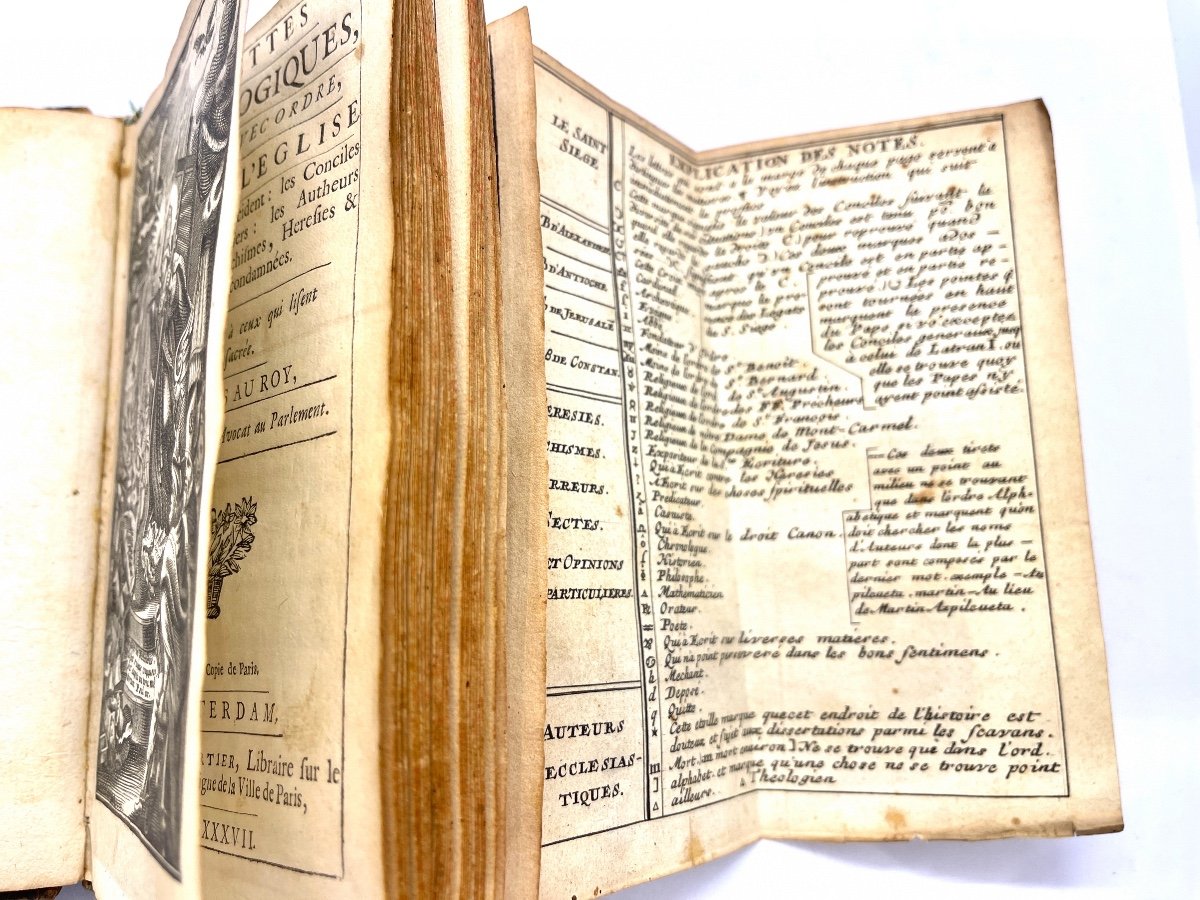 TTES
OGIQUES,
VEC ORDRE,
L'EGLISE
cident: les Conciles
ers: les Autheurs
chismes, Heresies &
condamnées.
à ceux qui lisent
sacrée.
S AU ROY,
Avocat au Parlement.
Copie de Paris,
TERDAM,
RTIER, Libraire sur le
igne de la Ville de Paris,
XXXVII.
LE SAINT
SIEGE
D'ALEXANDRIE
D'ANTIOCHE
DE JERUSALE
DE CONSTAN
ERESIES.
CHISMES.
RREURS.
SECTES.
ET OPINIONS
PARTICULIERES.
AUTEURS
ECCLESIAS-
TIQUES.
EXPLICATION DES NOTES.
la marge de chaque page servent a
l'instruction qui suit
la valeur des Conciles suivant la
un Concile est tenu pr. bon
pour reprouvé quand
Ces deux marques dos —
qu'un Concile est en partie ap-
prouvé et en partie re-
prouvé )( Les pointes q
sont tournées en haut
marquent la presence
du Pape, si vs exceptez
les Conciles generaux jusq
à celui de Latran I. ou
elle se trouve quoy
que les Papes n'y
ayent point assisté.
Cardinal
Archevêque
Abbé
St. Siege.
Fondateur d'Ordre
St. Benoit.
St. Bernard.
de St. Augustin.
des FF. Precheurs
Religieux de l'ordre de St. François.
Religieux de nôtre Dame de Mont-Carmel.
Religieux de la Compagnie de Jesus.
Expositeur de la Ste. Ecriture.
Qui a Ecrit contre les Heresies
A Ecrit sur des choses spirituelles
Predicateur.
Casuiste.
Qui a Ecrit sur le droit Canon.
Chronologue.
Historien.
Philosophe.
Mathematicien
Orateur.
Poete.
Qui a Ecrit sur diverses matieres.
Qui n'a point perseveré dans les bons sentimens.
h Mechant.
d Deposé.
q Quitte.
★ Cette etoille marque que cet endroit de l'histoire est
douteux et sujet aux dissertations parmi les scavans.
m Mort, ou mort environ ] Ne se trouve que dans l'ord.
alphabet. et marque qu'une chose ne se trouve point
ailleurs. Theologien
— Ces deux tirets
avec un point au
milieu ne se trouvant
que dans l'ordre Alph-
abetique et marquent qu'on
doit chercher les noms
d'Auteurs dont la plus —
part sont composés par le
dernier mot. exemple — Az
pilcueta, martin — Au lieu
de Martin Azpilcueta.